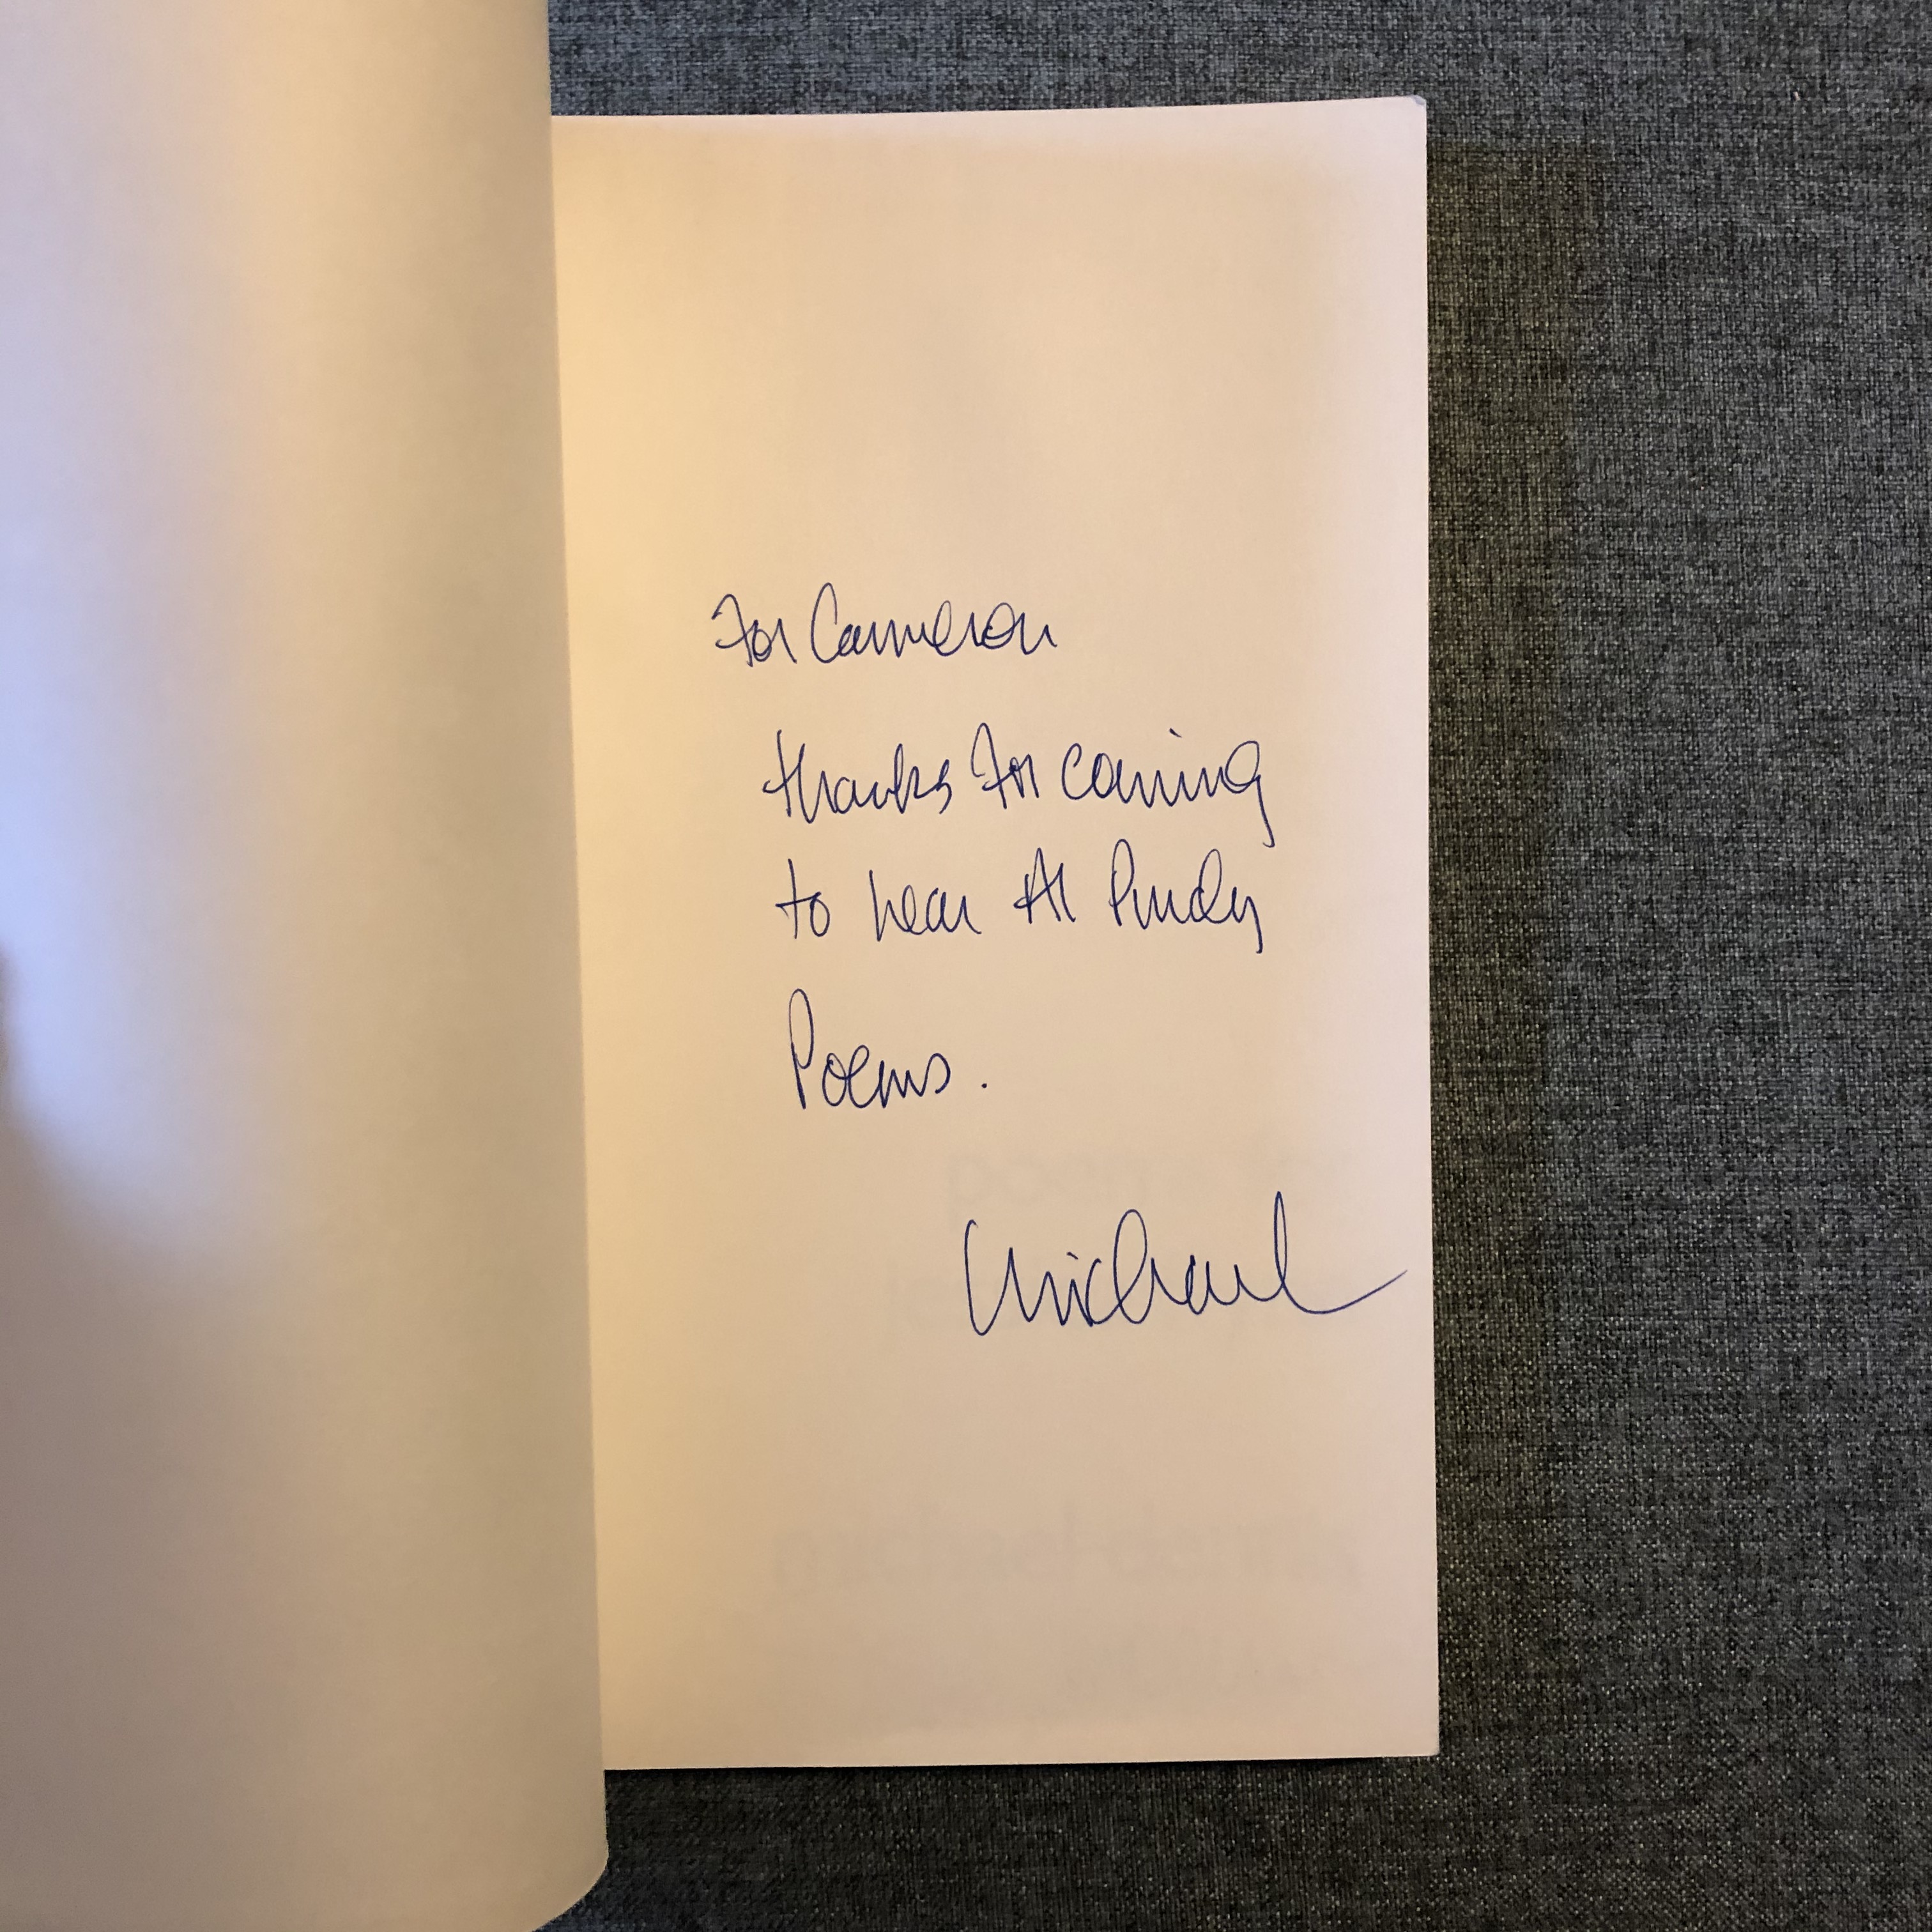 For Cameron
thanks for coming
to hear Al Purdy
Poems.
Michael